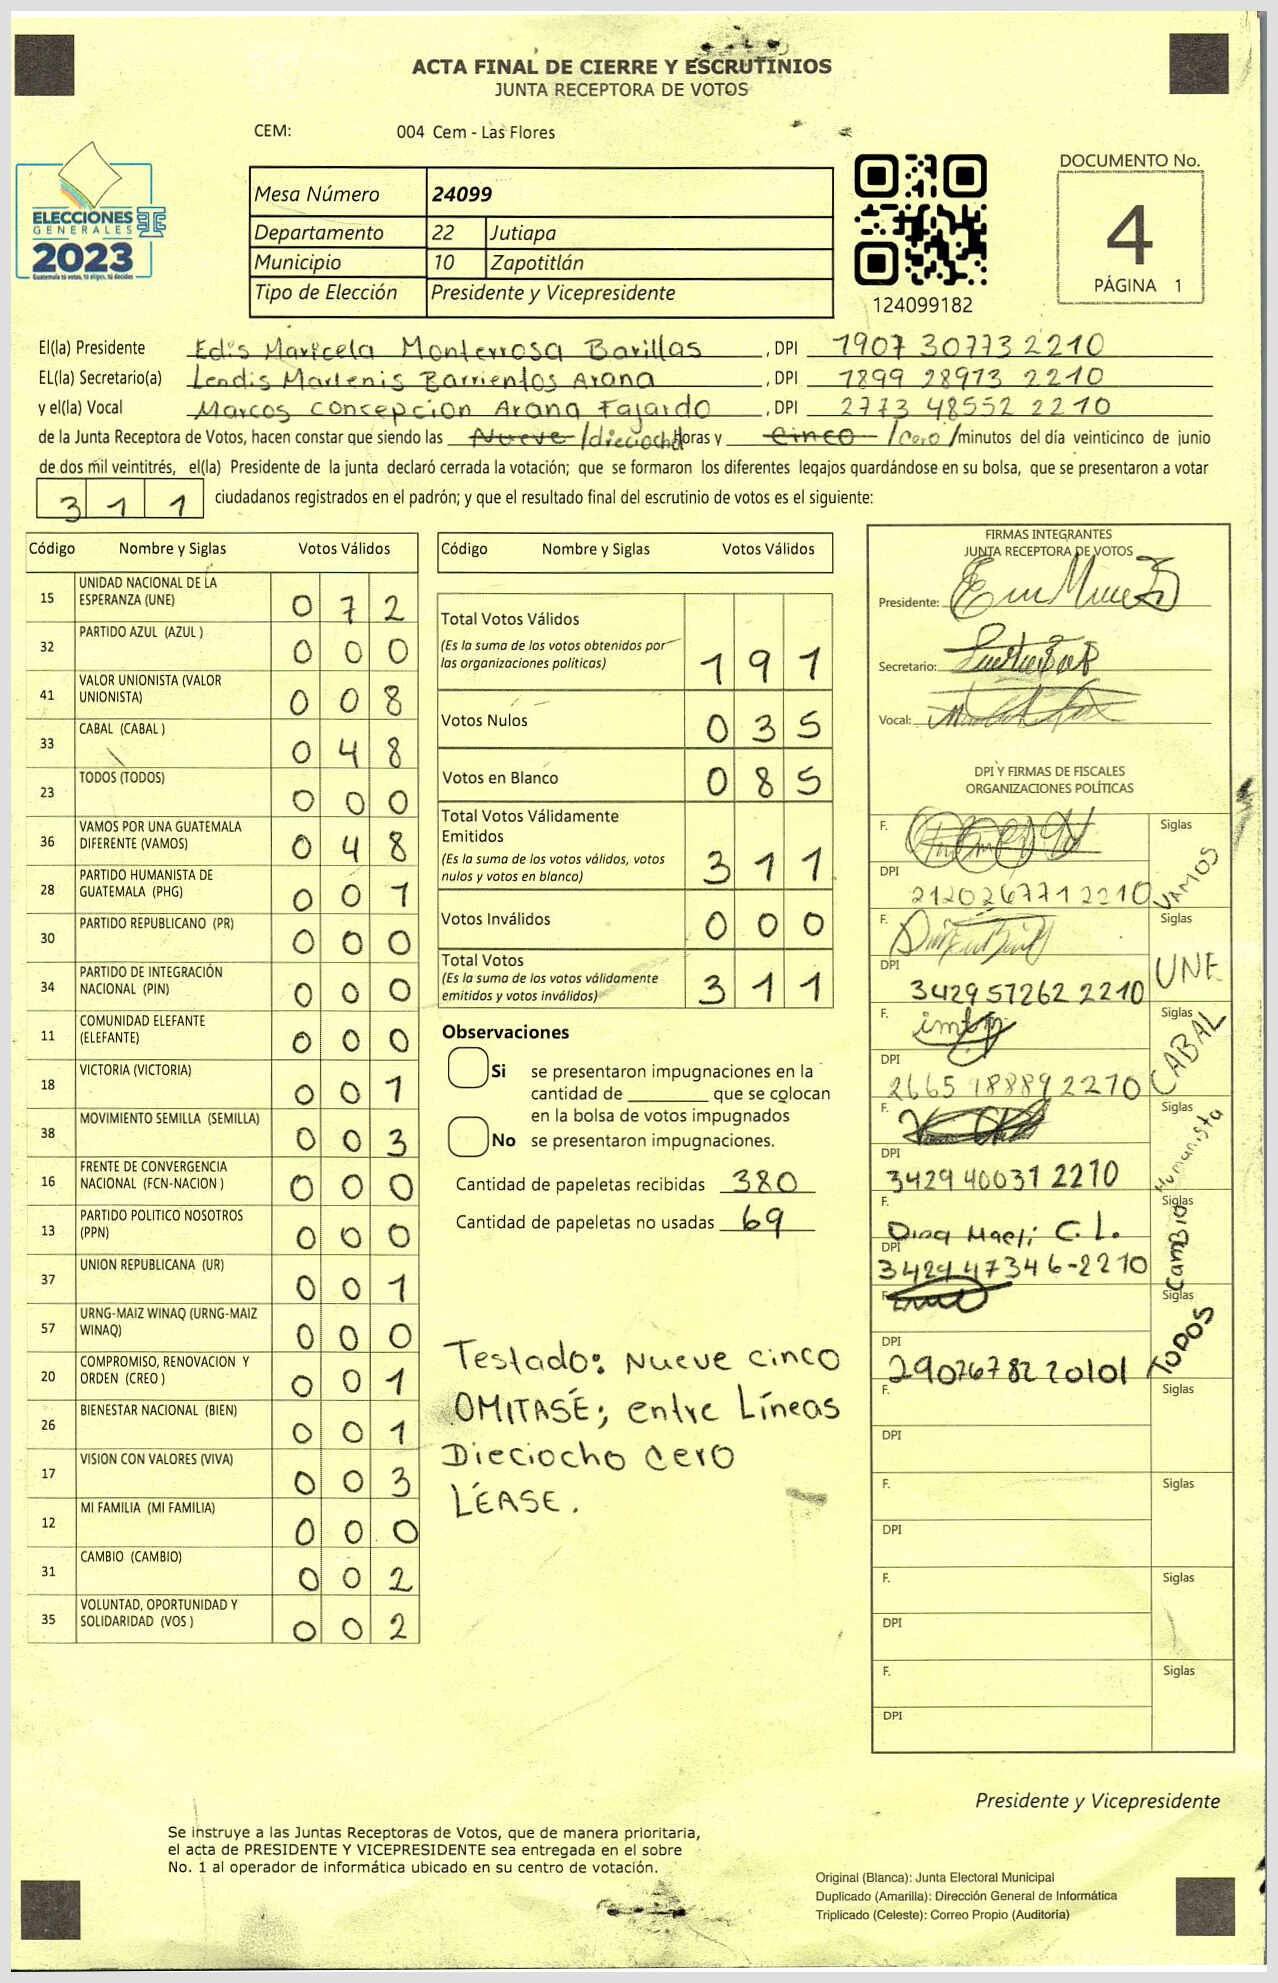 ACTA FINAL DE CIERRE Y ESCRUTINIOS
JUNTA RECEPTORA DE VOTOS
CEM: 004 Cem - Las Flores
ELECCIONES
GENERALES
2023
Guatemala tú votas, tú eliges, tú decides
Mesa Número 24099
Departamento 22 Jutiapa
Municipio 10 Zapotitlán
Tipo de Elección Presidente y Vicepresidente
124099182
DOCUMENTO No.
4
PÁGINA 1
El(la) Presidente Edis Maricela Monterrosa Barillas, DPI 1907 30773 2210
EL(la) Secretario(a) Lendis Marlenis Barrientos Arana, DPI 1899 28973 2210
y el(la) Vocal Marcos Concepcion Arana Fajardo, DPI 2773 48552 2210
de la Junta Receptora de Votos, hacen constar que siendo las Nueve /dieciocho horas y Cinco /cero/ minutos del día veinticinco de junio
de dos mil veintitrés, el(la) Presidente de la junta declaró cerrada la votación; que se formaron los diferentes legajos guardándose en su bolsa, que se presentaron a votar
3 1 1 ciudadanos registrados en el padrón; y que el resultado final del escrutinio de votos es el siguiente:
Código Nombre y Siglas Votos Válidos
15 UNIDAD NACIONAL DE LA ESPERANZA (UNE) 0 7 2
32 PARTIDO AZUL (AZUL ) 0 0 0
41 VALOR UNIONISTA (VALOR UNIONISTA) 0 0 8
33 CABAL (CABAL ) 0 4 8
23 TODOS (TODOS) 0 0 0
36 VAMOS POR UNA GUATEMALA DIFERENTE (VAMOS) 0 4 8
28 PARTIDO HUMANISTA DE GUATEMALA (PHG) 0 0 1
30 PARTIDO REPUBLICANO (PR) 0 0 0
34 PARTIDO DE INTEGRACIÓN NACIONAL (PIN) 0 0 0
11 COMUNIDAD ELEFANTE (ELEFANTE) 0 0 0
18 VICTORIA (VICTORIA) 0 0 1
38 MOVIMIENTO SEMILLA (SEMILLA) 0 0 3
16 FRENTE DE CONVERGENCIA NACIONAL (FCN-NACION ) 0 0 0
13 PARTIDO POLITICO NOSOTROS (PPN) 0 0 0
37 UNION REPUBLICANA (UR) 0 0 1
57 URNG-MAIZ WINAQ (URNG-MAIZ WINAQ) 0 0 0
20 COMPROMISO, RENOVACION Y ORDEN (CREO ) 0 0 1
26 BIENESTAR NACIONAL (BIEN) 0 0 1
17 VISION CON VALORES (VIVA) 0 0 3
12 MI FAMILIA (MI FAMILIA) 0 0 0
31 CAMBIO (CAMBIO) 0 0 2
35 VOLUNTAD, OPORTUNIDAD Y SOLIDARIDAD (VOS ) 0 0 2
Código Nombre y Siglas Votos Válidos
Total Votos Válidos
(Es la suma de los votos obtenidos por
las organizaciones políticas) 1 9 1
Votos Nulos 0 3 5
Votos en Blanco 0 8 5
Total Votos Válidamente
Emitidos
(Es la suma de los votos válidos, votos
nulos y votos en blanco) 3 1 1
Votos Inválidos 0 0 0
Total Votos
(Es la suma de los votos válidamente
emitidos y votos inválidos) 3 1 1
Observaciones
Si se presentaron impugnaciones en la
cantidad de ________ que se colocan
en la bolsa de votos impugnados
No se presentaron impugnaciones.
Cantidad de papeletas recibidas 380
Cantidad de papeletas no usadas 69
Testado: Nueve cinco
OMITASÉ; entre Líneas
Dieciocho cero
LÉASE.
FIRMAS INTEGRANTES
JUNTA RECEPTORA DE VOTOS
Presidente:
Secretario:
Vocal:
DPI Y FIRMAS DE FISCALES
ORGANIZACIONES POLÍTICAS
F. Siglas
DPI 2120267712210 VAMOS
F. Siglas
DPI 3429 57262 2210 UNE
F. Siglas
DPI 2665 18889 2210 CABAL
F. Siglas
DPI 3429 40031 2210 Humanista
F. Siglas
DPI 3429 47346-2210 CAMBIO
F. Siglas
DPI 2907678220101 TODOS
F. Siglas
DPI
F. Siglas
DPI
F. Siglas
DPI
F. Siglas
DPI
Presidente y Vicepresidente
Se instruye a las Juntas Receptoras de Votos, que de manera prioritaria,
el acta de PRESIDENTE Y VICEPRESIDENTE sea entregada en el sobre
No. 1 al operador de informática ubicado en su centro de votación.
Original (Blanca): Junta Electoral Municipal
Duplicado (Amarilla): Dirección General de Informática
Triplicado (Celeste): Correo Propio (Auditoría)